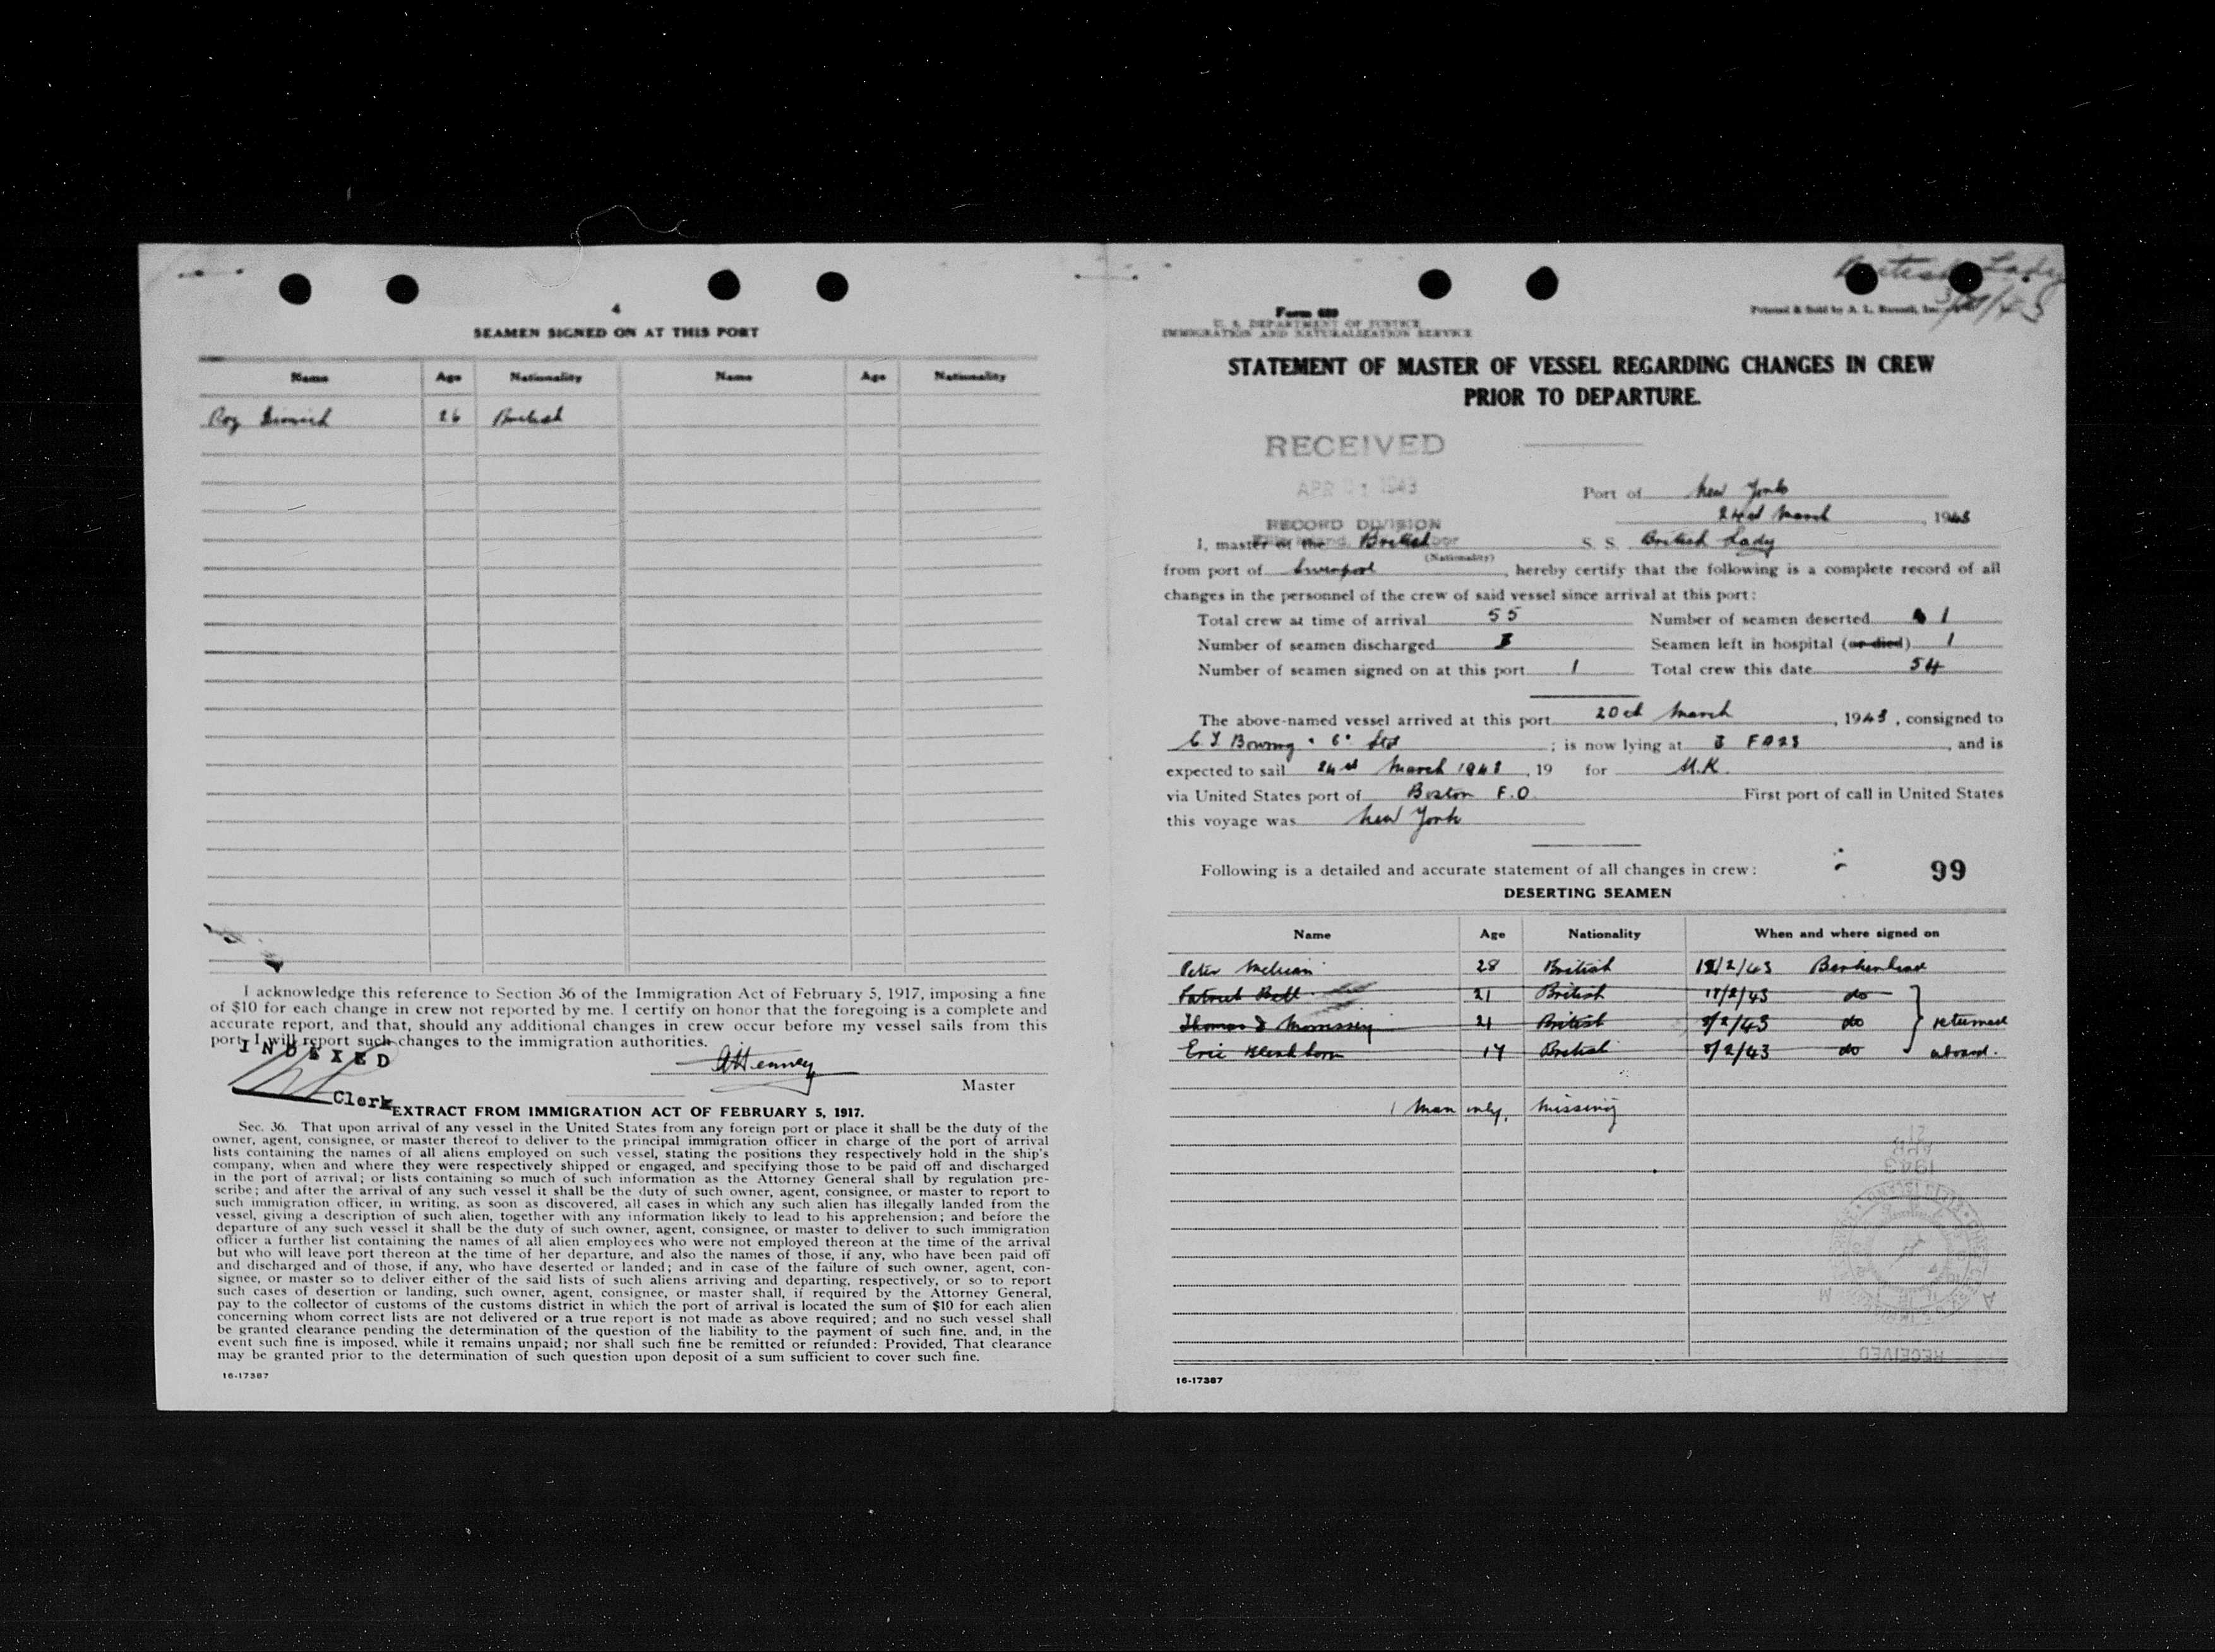 4
SEAMEN SIGNED ON AT THIS PORT
Name Age Nationality Name Age Nationality
Roy 26 British
I acknowledge this reference to Section 36 of the Immigration Act of February 5, 1917, imposing a fine
of $10 for each change in crew not reported by me. I certify on honor that the foregoing is a complete and
accurate report, and that, should any additional changes in crew occur before my vessel sails from this
port, I will report such changes to the immigration authorities.
INDEXED
Master
Clerk
EXTRACT FROM IMMIGRATION ACT OF FEBRUARY 5, 1917.
Sec. 36. That upon arrival of any vessel in the United States from any foreign port or place it shall be the duty of the
owner, agent, consignee, or master thereof to deliver to the principal immigration officer in charge of the port of arrival
lists containing the names of all aliens employed on such vessel, stating the positions they respectively hold in the ship's
company, when and where they were respectively shipped or engaged, and specifying those to be paid off and discharged
in the port of arrival; or lists containing so much of such information as the Attorney General shall by regulation pre-
scribe; and after the arrival of any such vessel it shall be the duty of such owner, agent, consignee, or master to report to
such immigration officer, in writing, as soon as discovered, all cases in which any such alien has illegally landed from the
vessel, giving a description of such alien, together with any information likely to lead to his apprehension; and before the
departure of any such vessel it shall be the duty of such owner, agent, consignee, or master to deliver to such immigration
officer a further list containing the names of all alien employees who were not employed thereon at the time of the arrival
but who will leave port thereon at the time of her departure, and also the names of those, if any, who have been paid off
and discharged and of those, if any, who have deserted or landed; and in case of the failure of such owner, agent, con-
signee, or master so to deliver either of the said lists of such aliens arriving and departing, respectively, or so to report
such cases of desertion or landing, such owner, agent, consignee, or master shall, if required by the Attorney General,
pay to the collector of customs of the customs district in which the port of arrival is located the sum of $10 for each alien
concerning whom correct lists are not delivered or a true report is not made as above required; and no such vessel shall
be granted clearance pending the determination of the question of the liability to the payment of such fine, and, in the
event such fine is imposed, while it remains unpaid; nor shall such fine be remitted or refunded: Provided, That clearance
may be granted prior to the determination of such question upon deposit of a sum sufficient to cover such fine.
16-17387
British Lady
Form 689
Printed & Sold by A. L. Russell, Inc.
U. S. DEPARTMENT OF JUSTICE
IMMIGRATION AND NATURALIZATION SERVICE
STATEMENT OF MASTER OF VESSEL REGARDING CHANGES IN CREW
PRIOR TO DEPARTURE.
RECEIVED
APR 1 1943
Port of New York
March, 1943
RECORD DIVISION
I, master of the British S. S. British Lady
(Nationality)
from port of Liverpool, hereby certify that the following is a complete record of all
changes in the personnel of the crew of said vessel since arrival at this port:
Total crew at time of arrival 55 Number of seamen deserted 1
Number of seamen discharged Seamen left in hospital (or died) 1
Number of seamen signed on at this port 1 Total crew this date 54
The above-named vessel arrived at this port 20th March, 1943, consigned to
C. T. Bowring & Co. Ltd; is now lying at, and is
expected to sail 24th March 1943, 19 for U.K.
via United States port of Boston F.O. First port of call in United States
this voyage was New York
Following is a detailed and accurate statement of all changes in crew: 99
DESERTING SEAMEN
Name Age Nationality When and where signed on
Peter 28 British /2/43 Birkenhead
Patrick Bell 21 British /2/43 do
Thomas Morrissey 21 British /2/43 do returned
Eric 17 British /2/43 do aboard.
1 Man only, missing
APR
1943
RECEIVED
16-17387